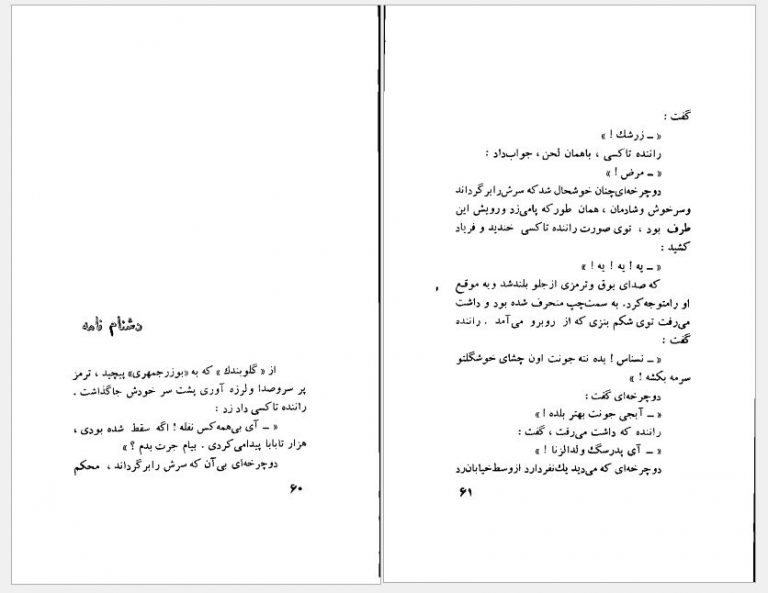 دشنام نامه
از « گلوبندك » که به «بوزرجمهری» پیچید ، ترمز
پر سروصدا ولرزه آوری پشت سر خودش جاگذاشت .
راننده تاکسی داد زد :
« ـ آی بی‌همه‌کس نفله ! اگه سقط شده بودی ،
هزار تابابا پیدامی‌کردی . بیام جرت بدم ؟ »
دوچرخه‌ای بی‌آن که سرش رابرگرداند ، محکم
۶۰
گفت :
« ـ زرشك ! »
راننده تاکسی ، باهمان لحن ، جواب‌داد :
« ـ مرض ! »
دوچرخه‌ای‌چنان خوشحال شدکه سرش‌رابرگرداند
وسرخوش وشادمان ، همان طورکه پامی‌زد ورویش این
طرف بود ، توی صورت راننده تاکسی خندید و فریاد
کشید :
« ـ یه ! یه ! یه ! »
که صدای بوق وترمزی ازجلو بلندشد وبه موقع
او رامتوجه‌کرد. به سمت‌چپ منحرف شده بود و داشت
می‌رفت توی شکم بنزی که از روبرو می‌آمد . راننده
گفت :
« ـ نسناس ! بده ننه جونت اون چشای خوشگلتو
سرمه بکشه ! »
دوچرخه‌ای گفت :
« ـ آبجی جونت بهتر بلده ! »
راننده که داشت می‌رفت ، گفت :
« ـ آی پدرسگ ولدالزنا ! »
دوچرخه‌ای که می‌دید یك‌نفردارد ازوسط‌خیابان‌رد
۶۱